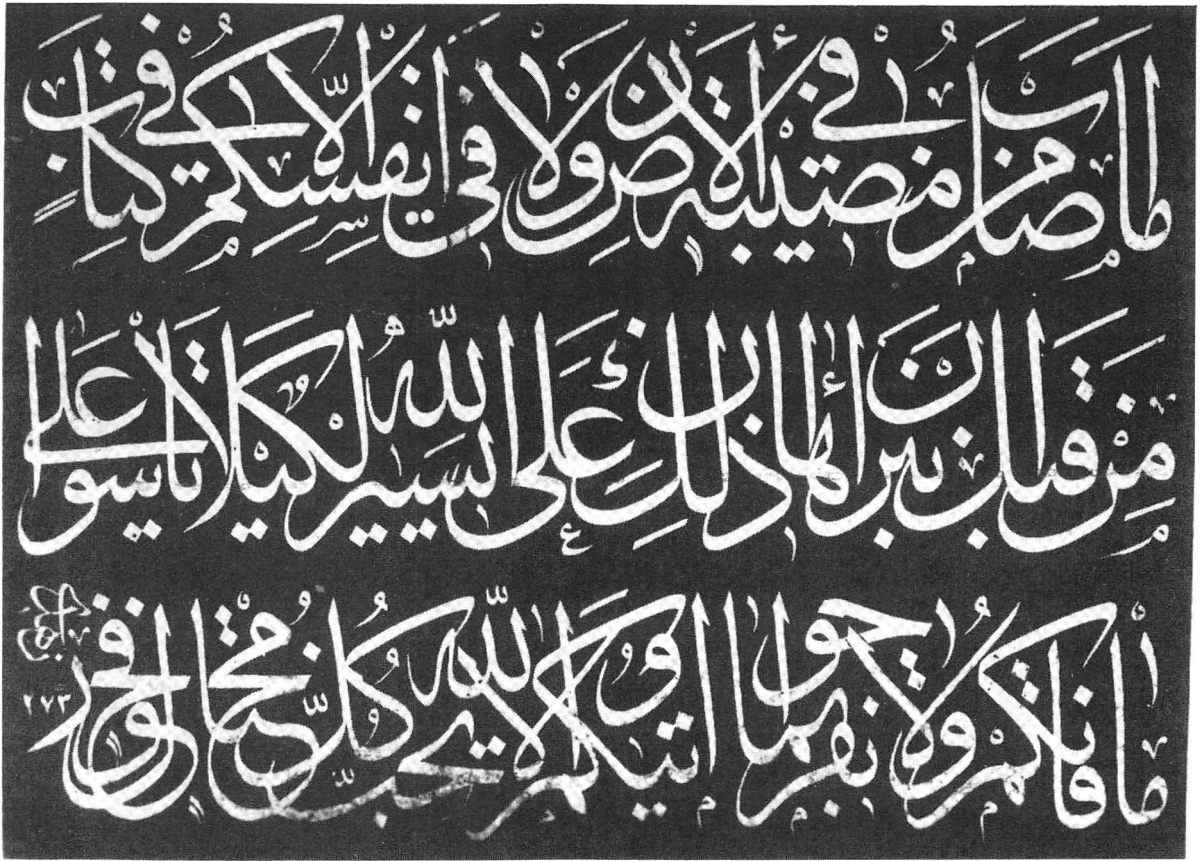 ما أصاب من مصيبة في الأرض ولا في أنفسكم إلا في كتاب
من قبل أن نبرأها إن ذلك على الله يسير لكيلا تأسوا على
ما فاتكم ولا تفرحوا بما آتيكم والله لا يحب كل مختال فخور
٢٧٣